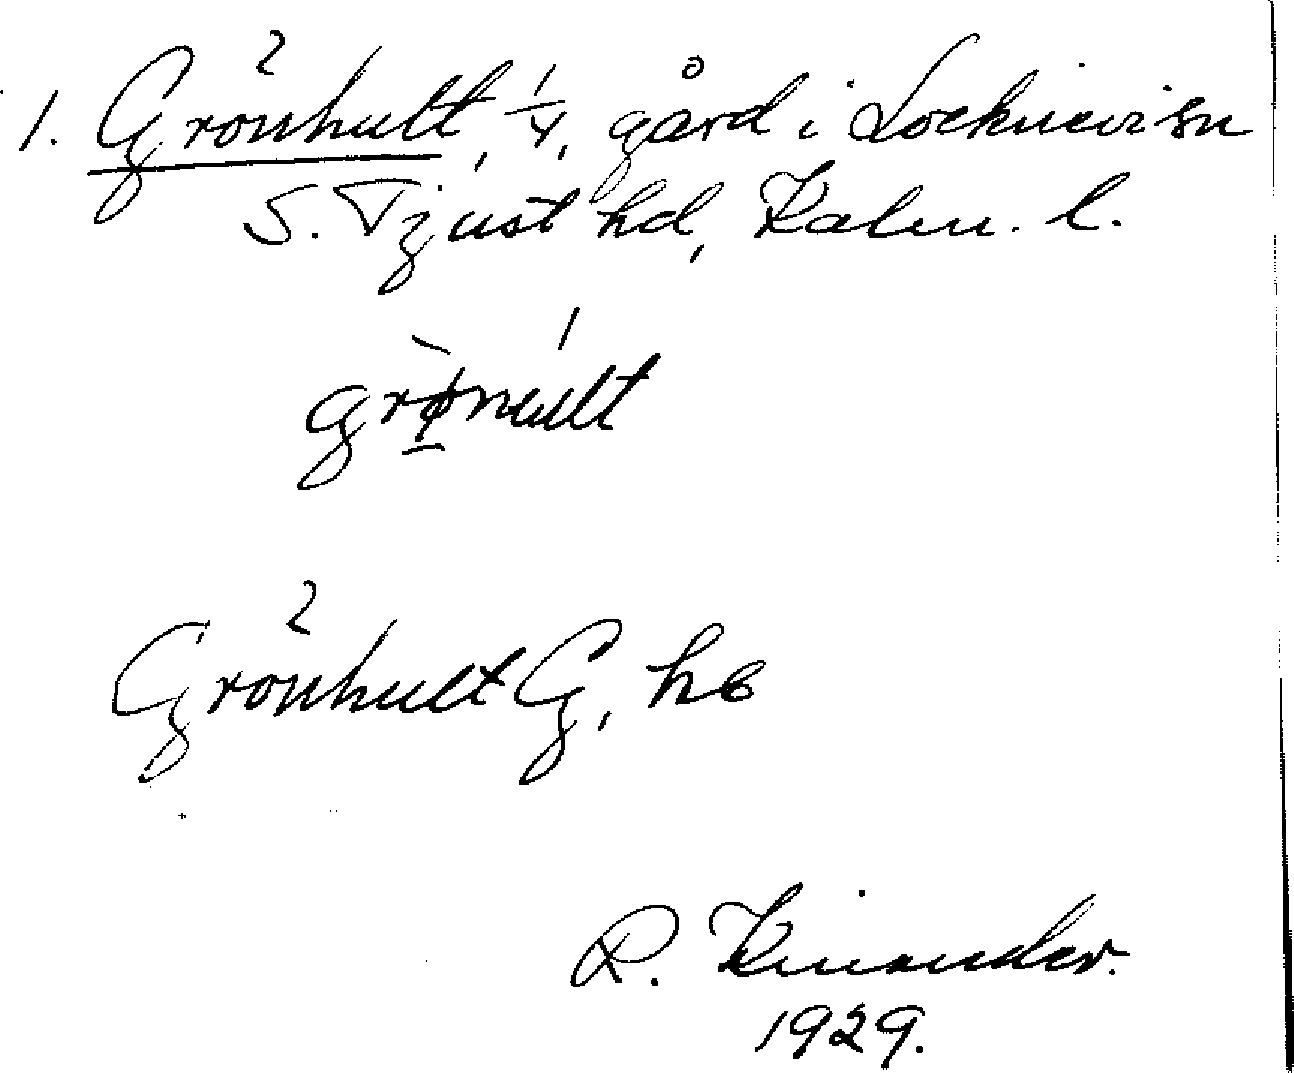 1. Grönhult, 1/4, gård i Locknevi sn
S. Tjust hd, Kalm. l.
grø̀núlt
Grönhult G, he
R. Kinander.
1929.